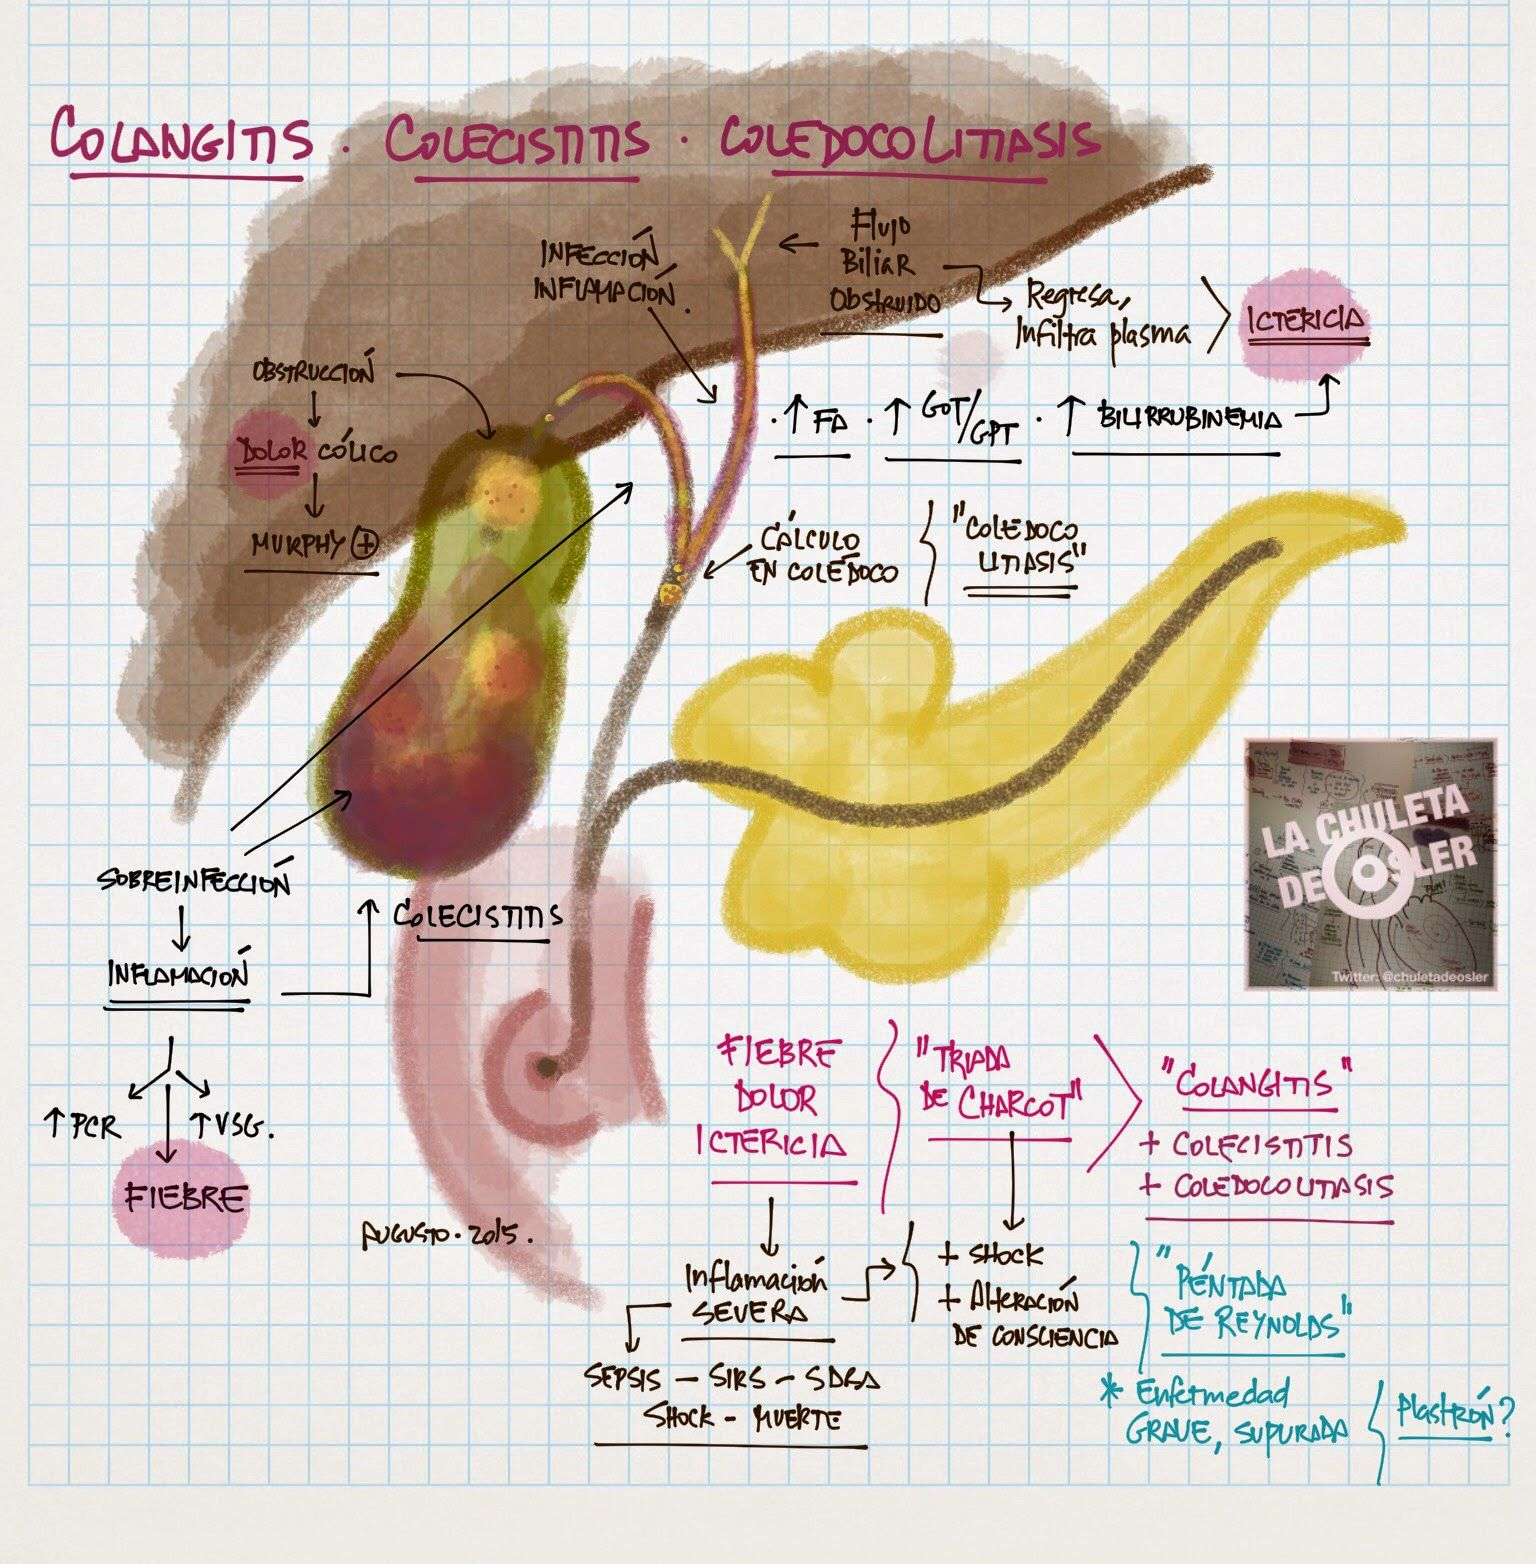 COLANGITIS . COLECISTITIS . COLEDOCOLITIASIS
INFECCIÓN
INFLAMACIÓN.
Flujo
Biliar
Obstruido
Regresa,
Infiltra plasma
ICTERICIA
OBSTRUCCIÓN
DOLOR CÓLICO
MURPHY +
. ↑ FA . ↑ GOT/GPT . ↑ BILIRRUBINEMIA
CÁLCULO
EN COLÉDOCO
"COLEDOCO
LITIASIS"
SOBREINFECCIÓN
INFLAMACIÓN
COLECISTITIS
↑ PCR
↑ VSG.
FIEBRE
AUGUSTO. 2015.
LA CHULETA
DE OSLER
Twitter: @chuletadeosler
FIEBRE
DOLOR
ICTERICIA
"TRIADA
DE CHARCOT"
"COLANGITIS"
+ COLECISTITIS
+ COLEDOCOLITIASIS
Inflamación
SEVERA
+ SHOCK
+ Alteración
DE CONSCIENCIA
"PÉNTADA
DE REYNOLDS"
SEPSIS - SIRS - SDRA
SHOCK - MUERTE
* Enfermedad
GRAVE, SUPURADA
Plastrón?